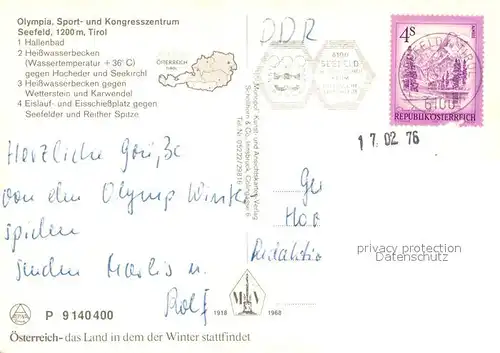 Olympia, Sport- und Kongresszentrum
Seefeld, 1200 m, Tirol
1 Hallenbad
2 Heißwasserbecken
(Wassertemperatur +36°C)
gegen Hocheder und Seekirchl
3 Heißwasserbecken gegen
Wetterstein und Karwendel
4 Eislauf- und Eisschießplatz gegen
Seefelder und Reither Spitze
ÖSTERREICH
DDR
6100
SEEFELD
4S
6100
REPUBLIK ÖSTERREICH
17.02 76
Herzliche Grüße
von den Olymp Winter
spielen
senden Marlis u.
Rolf
Redaktion
privacy protection
Datenschutz
1918
1968
P 9 140 400
Österreich - das Land in dem der Winter stattfindet